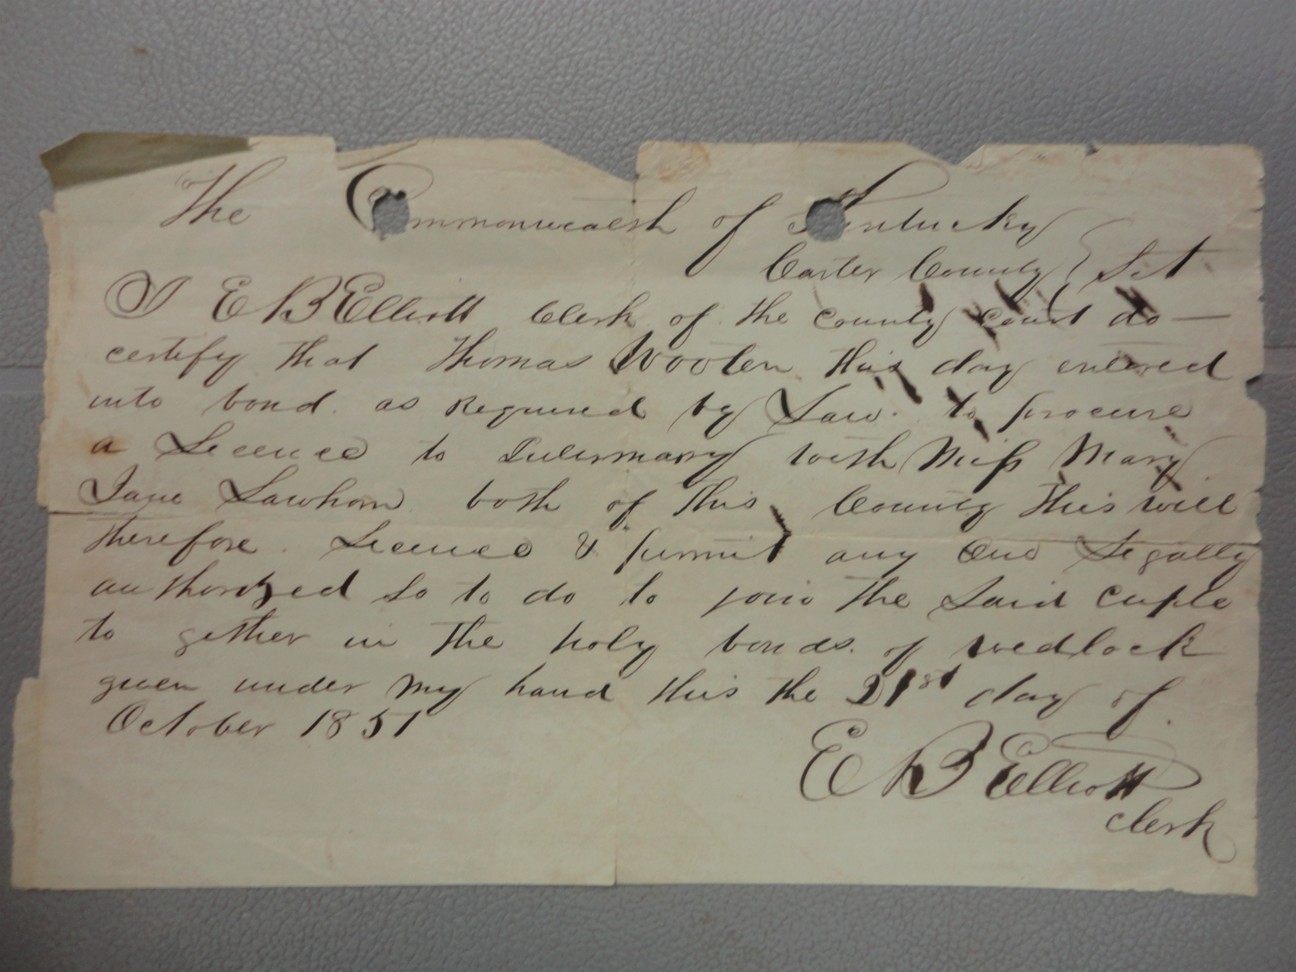 The Commonwealth of Kentucky
Carter County } Sct
I E B Elliott Clerk of the County Court do —
certify that Thomas Wooten this day entered
into bond as Required by Law to procure
a Licence to Intermary with Miss Mary
Jane Lawhorn both of this County this will
therefore Licence & permit any one Legally
authorized so to do to join the said cuple
to gether in the holy bonds of wedlock
given under my hand this the 21st day of
October 1851
E B Elliott
clerk